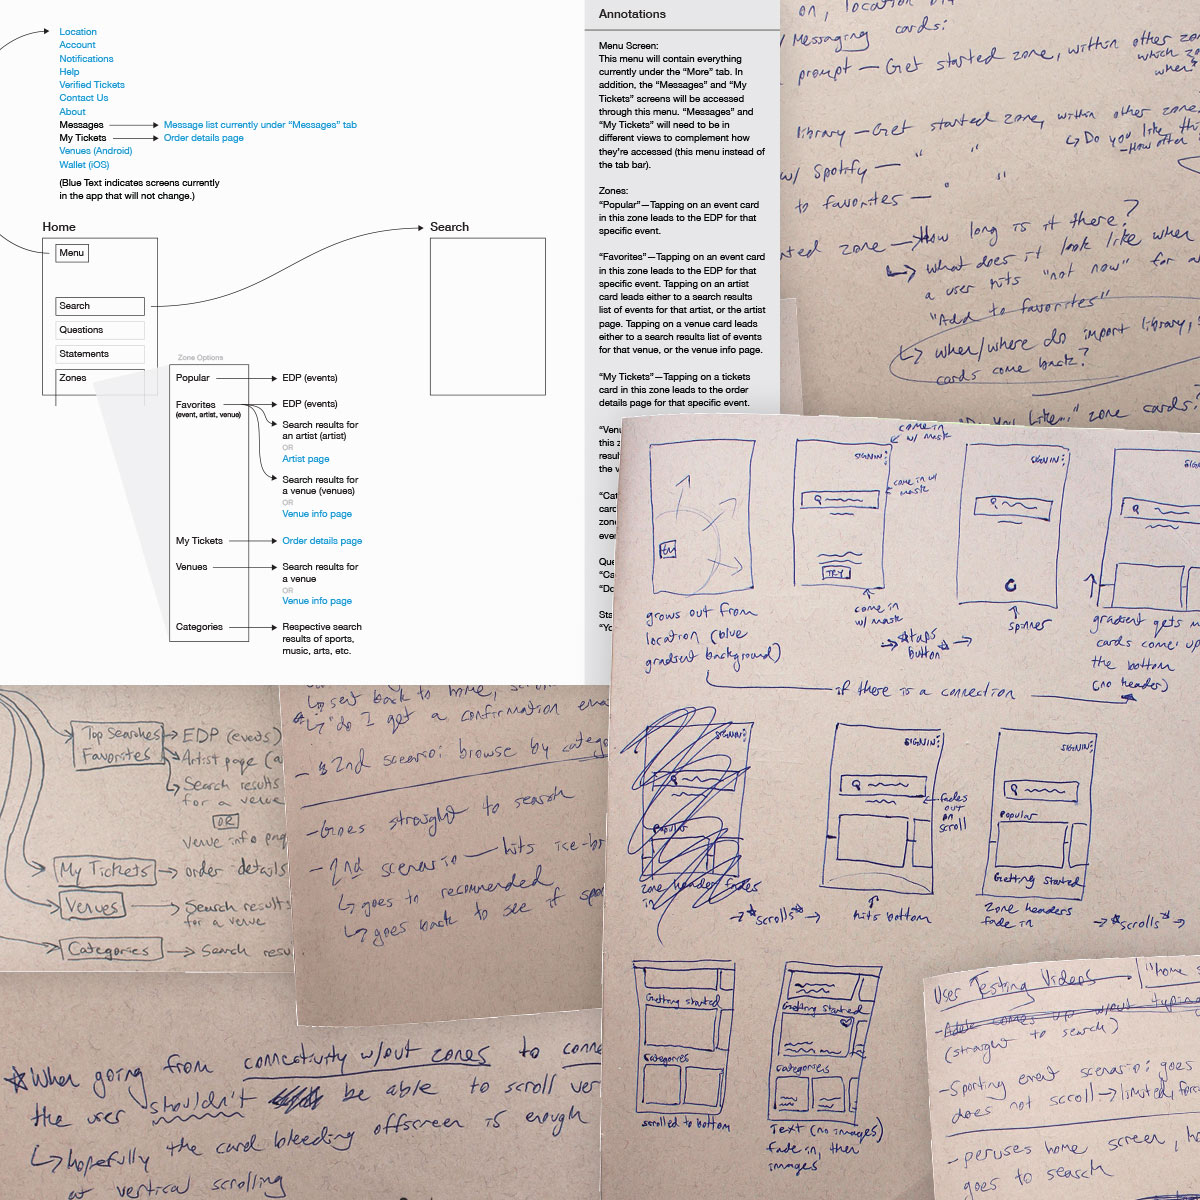 Location
Account
Notifications
Help
Verified Tickets
Contact Us
About
Messages
Message list currently under “Messages” tab
My Tickets
Order details page
Venues (Android)
Wallet (iOS)
(Blue Text indicates screens currently
in the app that will not change.)
Home
Menu
Search
Questions
Statements
Zones
Search
Zone Options
Popular
EDP (events)
Favorites
(event, artist, venue)
EDP (events)
Search results for
an artist (artist)
OR
Artist page
Search results for
a venue (venues)
OR
Venue info page
My Tickets
Order details page
Venues
Search results for
a venue
OR
Venue info page
Categories
Respective search
results of sports,
music, arts, etc.
Annotations
Menu Screen:
This menu will contain everything
currently under the “More” tab. In
addition, the “Messages” and “My
Tickets” screens will be accessed
through this menu. “Messages” and
“My Tickets” will need to be in
different views to complement how
they’re accessed (this menu instead of
the tab bar).
Zones:
“Popular”—Tapping on an event card
in this zone leads to the EDP for that
specific event.
“Favorites”—Tapping on an event card
in this zone leads to the EDP for that
specific event. Tapping on an artist
card leads either to a search results
list of events for that artist, or the artist
page. Tapping on a venue card leads
either to a search results list of events
for that venue, or the venue info page.
“My Tickets”—Tapping on a tickets
card in this zone leads to the order
details page for that specific event.
on, location
Messaging cards:
prompt — Get started zone, within other
which
when?
library — Get started zone, within other zone.
Do you like
—How often
w/ Spotify — " "
to favorites — " "
zone → How long is it there?
what does it look like when
a user hits "not now" for
"Add to favorites"
when/where do import library,
cards come back?
you like..." zone cards?
come in
w/ mask
SIGN IN
come in w/
mask
TRY
SIGN IN
grows out from
location (blue
gradient background)
come in
w/ mask
taps
button
spinner
gradient gets
cards come up
the bottom
(no header)
if there is a connection
SIGN IN
Popular
zone header fades
in
scrolls
SIGN IN
fades
out
on
scroll
hits bottom
SIGN IN
Popular
Getting started
Zone headers
fade in
scrolls
Getting started
Categories
scrolled to bottom
Getting started
Categories
Text (no images)
fade in, then
images
Top Searches
Favorites
EDP (events)
Artist page
Search results
for a venue
OR
Venue info page
My Tickets
order details
Venues
Search results
for a venue
Categories
Search
back to home,
do I get a confirmation
2nd scenario: browse by
—Goes straight to search
—2nd scenario — hits
goes to recommended
goes back to see if
When going from connectivity w/out zones to
the user shouldn't be able to scroll
hopefully the card bleeding offscreen is enough
at vertical scrolling
User Testing Videos
"home
comes up w/out typing
(straight to search)
—Sporting event scenario: goes
does not scroll → limited,
—peruses home screen,
goes to search